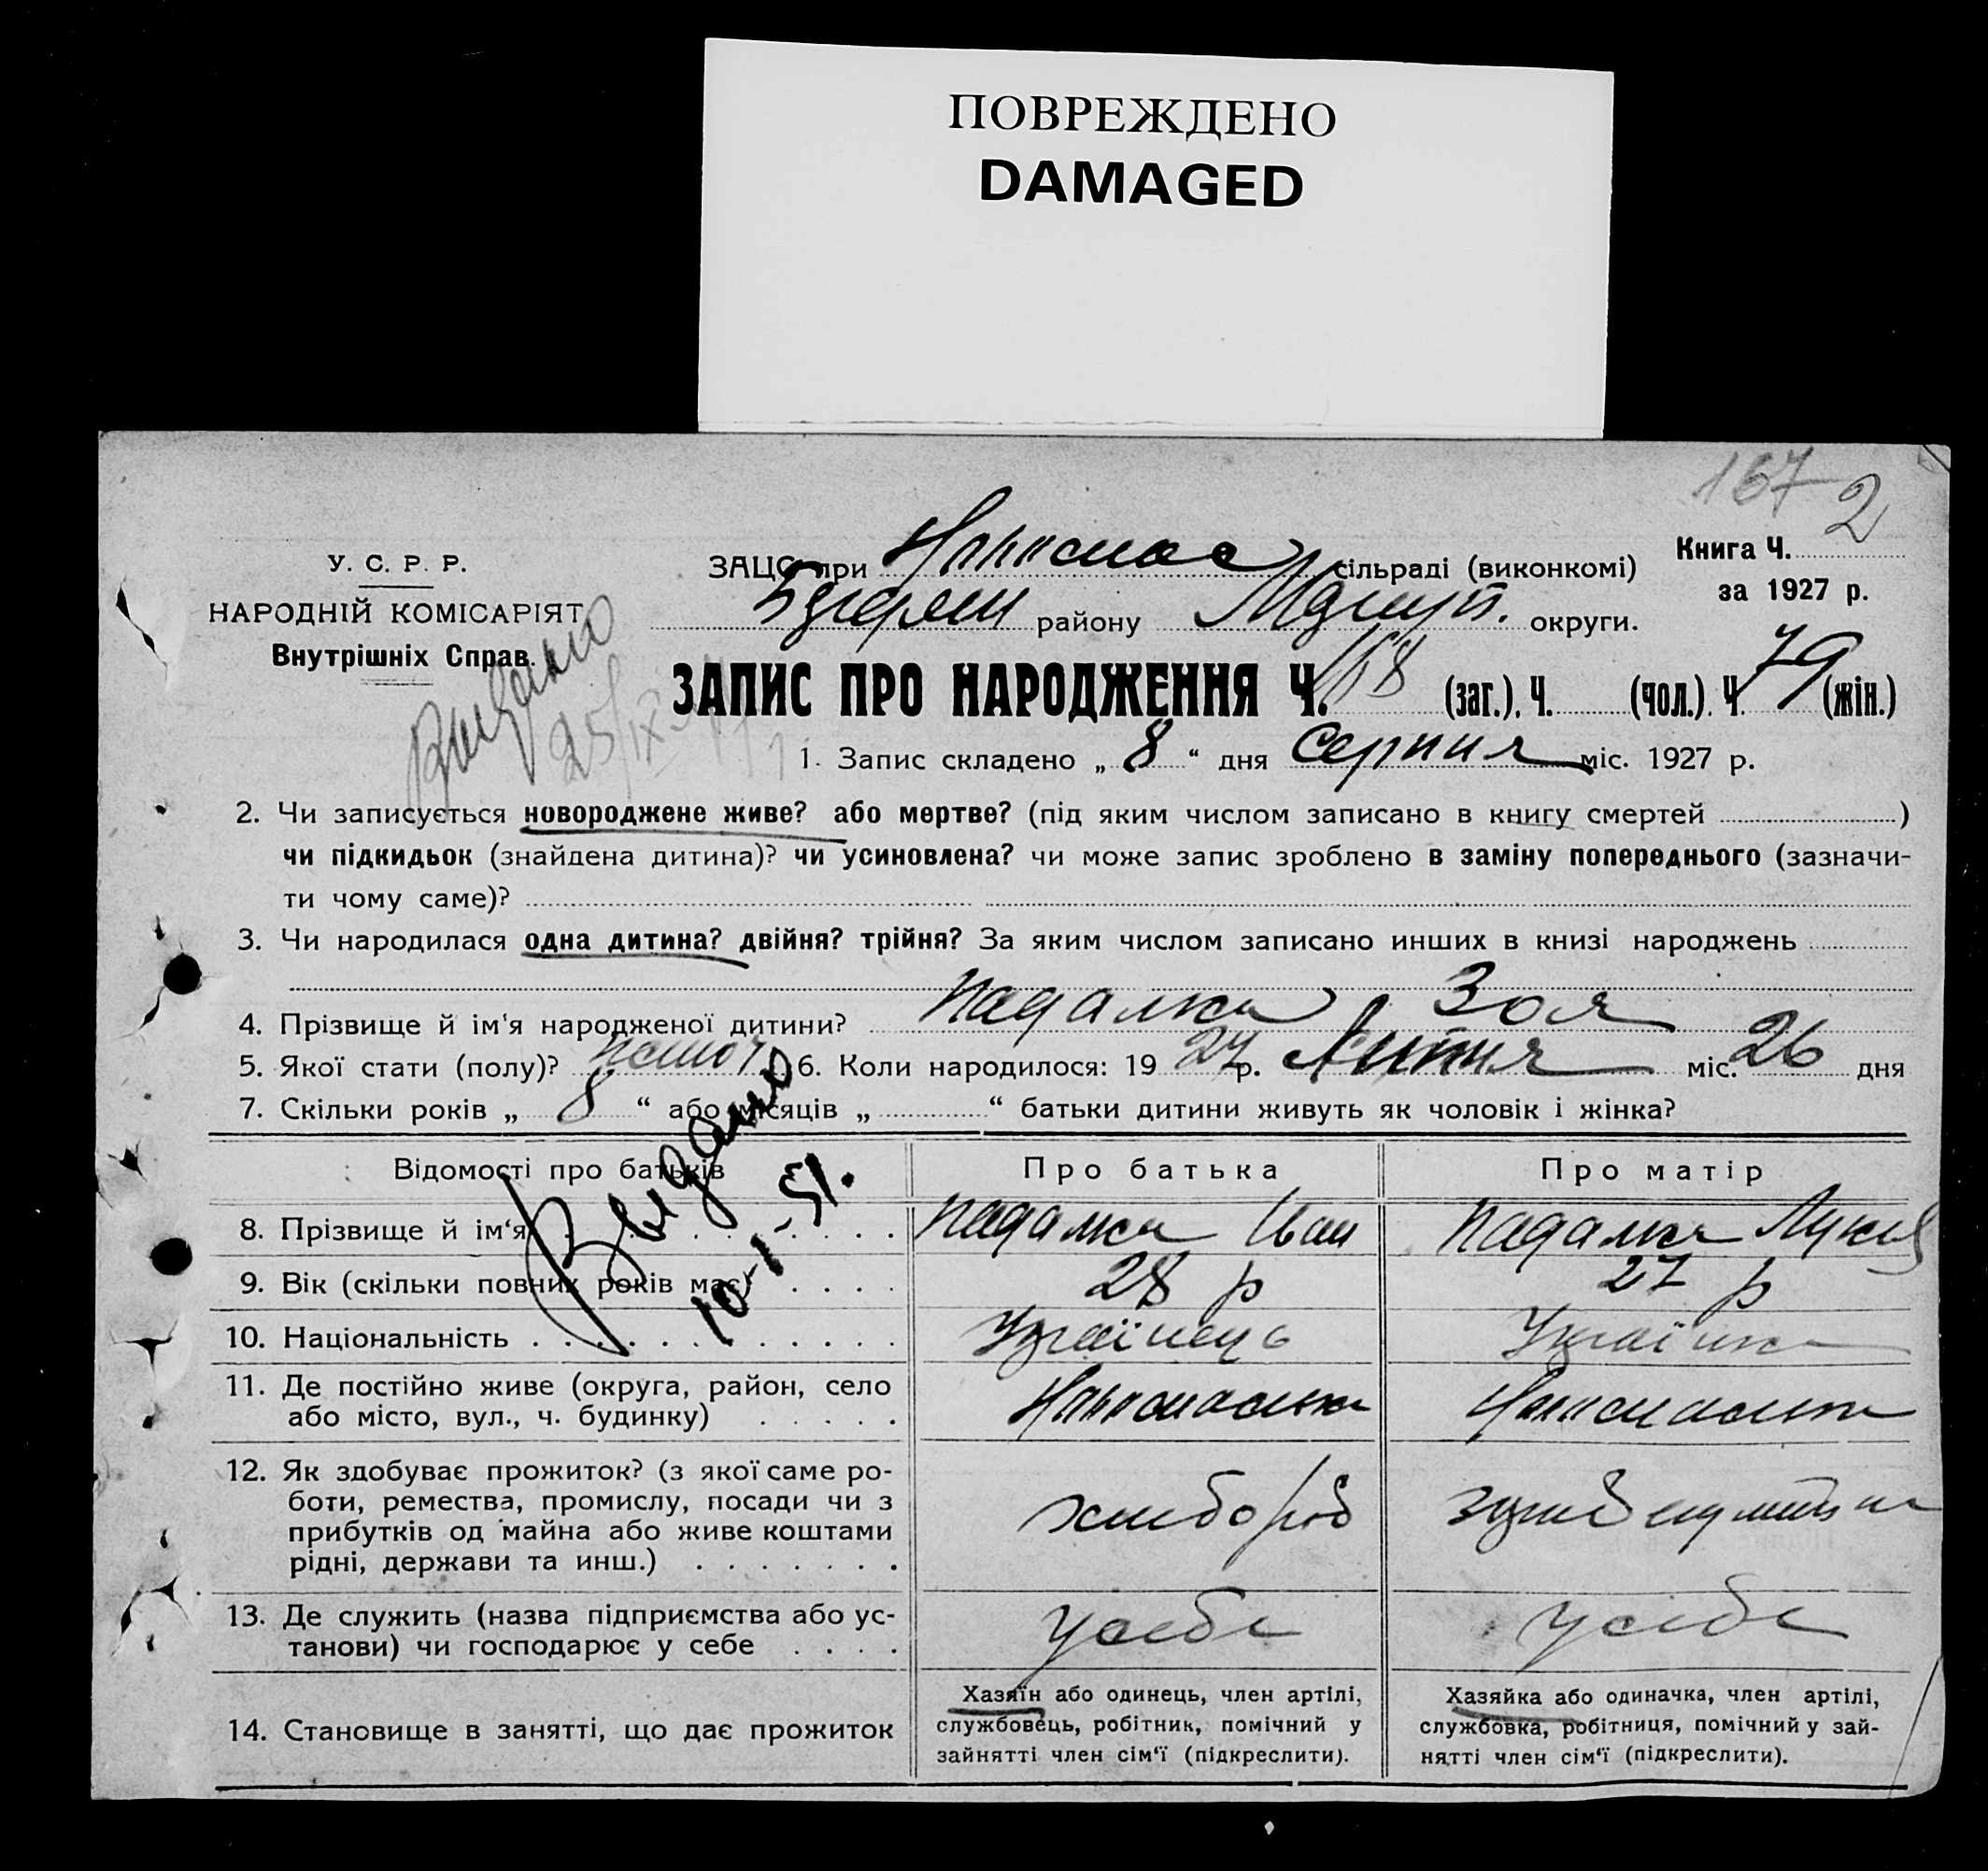 ПОВРЕЖДЕНО
DAMAGED
167 2
У. С. Р. Р.
НАРОДНІЙ КОМІСАРІЯТ
Внутрішніх Справ.
Видано
25/IX
ЗАЦС при сільраді (виконкомі)
району округи.
Книга Ч.
за 1927 р.
ЗАПИС ПРО НАРОДЖЕННЯ Ч. 158 (заг.). Ч. (чол.). Ч. 79 (жін.)
1. Запис складено „ 8 “ дня Серпня міс. 1927 р.
2. Чи записується новороджене живе? або мертве? (під яким числом записано в книгу смертей )
чи підкидьок (знайдена дитина)? чи усиновлена? чи може запис зроблено в заміну попереднього (зазначи-
ти чому саме)?
3. Чи народилася одна дитина? двійня? трійня? За яким числом записано инших в книзі народжень
4. Прізвище й ім'я народженої дитини? Падалка Зоя
5. Якої стати (полу)? 6. Коли народилося: 19 27 р. Липня міс. 26 дня
7. Скільки років „ 8 “ або місяців „ “ батьки дитини живуть як чоловік і жінка?
Видано
10-1-51.
Відомості про батьків Про батька Про матір
8. Прізвище й ім‘я Падалка Іван Падалка
9. Вік (скільки повних років має) 28 р 27 р
10. Національність Українець Українка
11. Де постійно живе (округа, район, село
або місто, вул., ч. будинку)
12. Як здобуває прожиток? (з якої саме ро-
боти, ремества, промислу, посади чи з
прибутків од майна або живе коштами
рідні, держави та инш.) хлибороб
13. Де служить (назва підприємства або ус-
танови) чи господарює у себе у себе у себе
14. Становище в занятті, що дає прожиток
Хазяїн або одинець, член артілі,
службовець, робітник, помічний у
зайнятті член сім‘ї (підкреслити).
Хазяйка або одиначка, член артілі,
службовка, робітниця, помічний у зай-
нятті член сім‘ї (підкреслити).